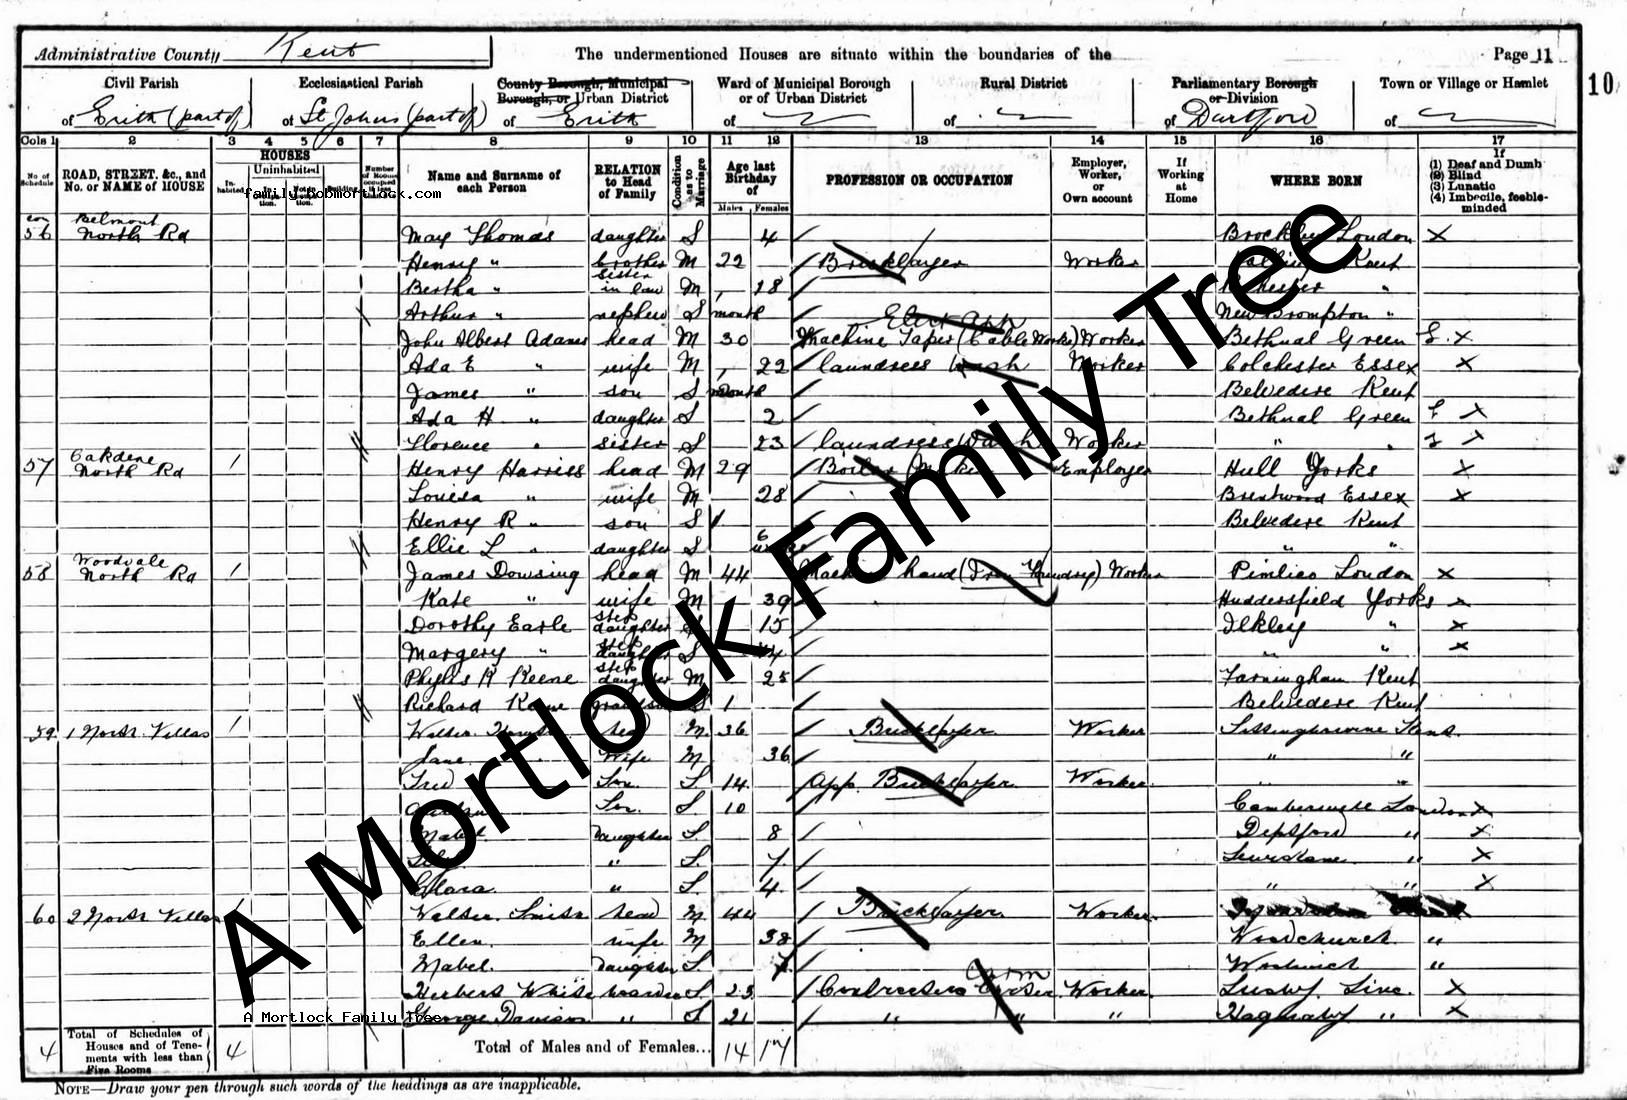 Administrative County Kent The undermentioned Houses are situate within the boundaries of the Page 11
10
Civil Parish Ecclesiastical Parish County Borough, Municipal Borough, or Urban District Ward of Municipal Borough or of Urban District Rural District Parliamentary Borough or Division Town or Village or Hamlet
of Erith (part of) of St. Johns (part of) of Erith of of of Dartford of
Cols 1 2 3 4 5 6 7 8 9 10 11 12 13 14 15 16 17
No. of Schedule ROAD, STREET, &c., and No. or NAME of HOUSE HOUSES Inhabited Uninhabited Building Name and Surname of each Person RELATION to Head of Family Condition as to Marriage Age last Birthday of Males Females PROFESSION OR OCCUPATION Employer, Worker, or Own account If Working at Home WHERE BORN If (1) Deaf and Dumb (2) Blind (3) Lunatic (4) Imbecile, feeble-minded
family.robmortlock.com
con 56 Belmont North Rd May Thomas daughter S 4 London X
Henry " brother M 22 Bricklayer Worker Kent
Bertha " sister in law M 18 "
Arthur " nephew S month New Brompton "
John Albert Adams head M 30 Machine Taper (Cable Works) Worker Bethnal Green X
Ada E " wife M 22 laundress Wash Worker Colchester Essex X
James " son S month Belvedere Kent
Ada H " daughter S 2 Bethnal Green X
Florence " sister S 23 laundress Wash Worker " X
57 Oakdene North Rd 1 Henry Harriss head M 29 Boiler Maker Employer Hull Yorks X
Louisa " wife M 28 Brentwood Essex X
Henry R " son S 1 Belvedere Kent
Ellie L " daughter S 6 " "
58 Woodvale North Rd 1 James Dowsing head M 44 hand (Iron Foundry) Worker Pimlico London X
Kate " wife M 39 Huddersfield Yorks X
Dorothy Earle step daughter S 15 Ilkley " X
Margery " step daughter S 14 " " X
Phylis K Keene step daughter M 25 Farningham Kent
Richard Keene grandson S 1 Belvedere Kent
59 1 North Villas 1 Walter head M 36 Bricklayer Worker
Jane wife M 36 " "
Fred Son S 14 App. Bricklayer Worker " "
Son S 10 Camberwell London X
Mabel Daughter S 8 Deptford " X
" S 7 " X
Clara " S 4 " " X
60 2 North Villas Walter Smith head M 44 Bricklayer Worker
Ellen wife M 38 Woodchurch "
Mabel Daughter S 7 Woolwich "
Herbert White boarder S 23 Contractors Carter Worker X
George " S 21 " " " " X
A Mortlock Family Tree
4 Total of Schedules of Houses and of Tenements with less than Five Rooms 4 Total of Males and of Females... 14 17
NOTE—Draw your pen through such words of the headings as are inapplicable.
A Mortlock Family Tree